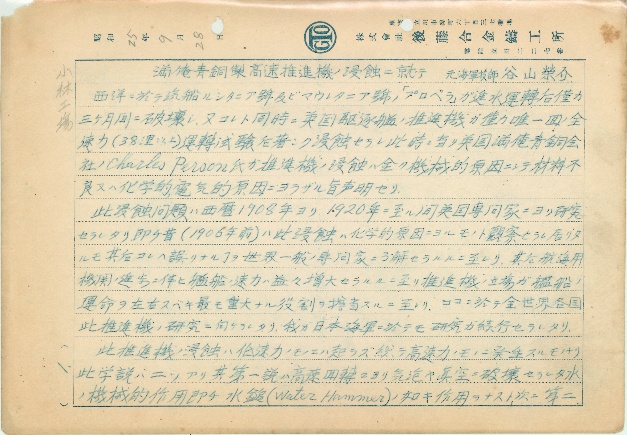 昭和 25 年 9 月 28 日
株式會社 後藤合金鑄工所
小林工場
満俺青銅製高速推進機ノ浸蝕ニ就テ 元海軍技師 谷山
西洋ニ於テ
三ケ月間ニ破壊シ、又コレト同時ニ英国駆逐艦ノ推進機ガ僅カ唯一回ノ全
速力(38浬以上)運轉試験后著シク浸蝕セラレ此時ニ当リ英国満俺青銅会
社ノ Charles Person 氏ガ推進機ノ浸蝕ハ全ク機械的原因ニシテ材料不
良又ハ化学的電気的原因ニヨラザル旨声明セリ
此浸蝕問題ハ西暦1908年ヨリ1920年ニ至ル間英国専門家ニヨリ研究
セラレタリ即チ昔(1906年前)ハ此浸蝕ハ化学的原因ニヨルモノト観察セラレ居リタ
ルモ其后コレハ誤リナル事世界一般ノ専門家ニ了解セラルルニ至レリ、其后舶用
機関ノ進歩ニ伴ヒ艦船ノ速力ハ益々増大セラルルニ至リ推進機ノ立場ガ艦船ノ
運命ヲ左右スベキ最モ重大ナル役割ヲ擔当スルニ至レリ、ココニ於テ全世界各国
此推進機ノ研究ニ向ケラレタリ、我ガ日本海軍ニ於テモ研究ガ続行セラレタリ、
此推進機ノ浸蝕ハ低速力ノモノニハ起ラズ総テ高速力ノモノニ発生スルモノナリ
此学説ハ二ツアリ其第一説ハ高速回轉ニヨリ気泡ヤ真空ノ破壊セラレタ水
ノ機械的作用即チ水鎚(Water Hammer)ノ如キ作用ヲナス以テ第二